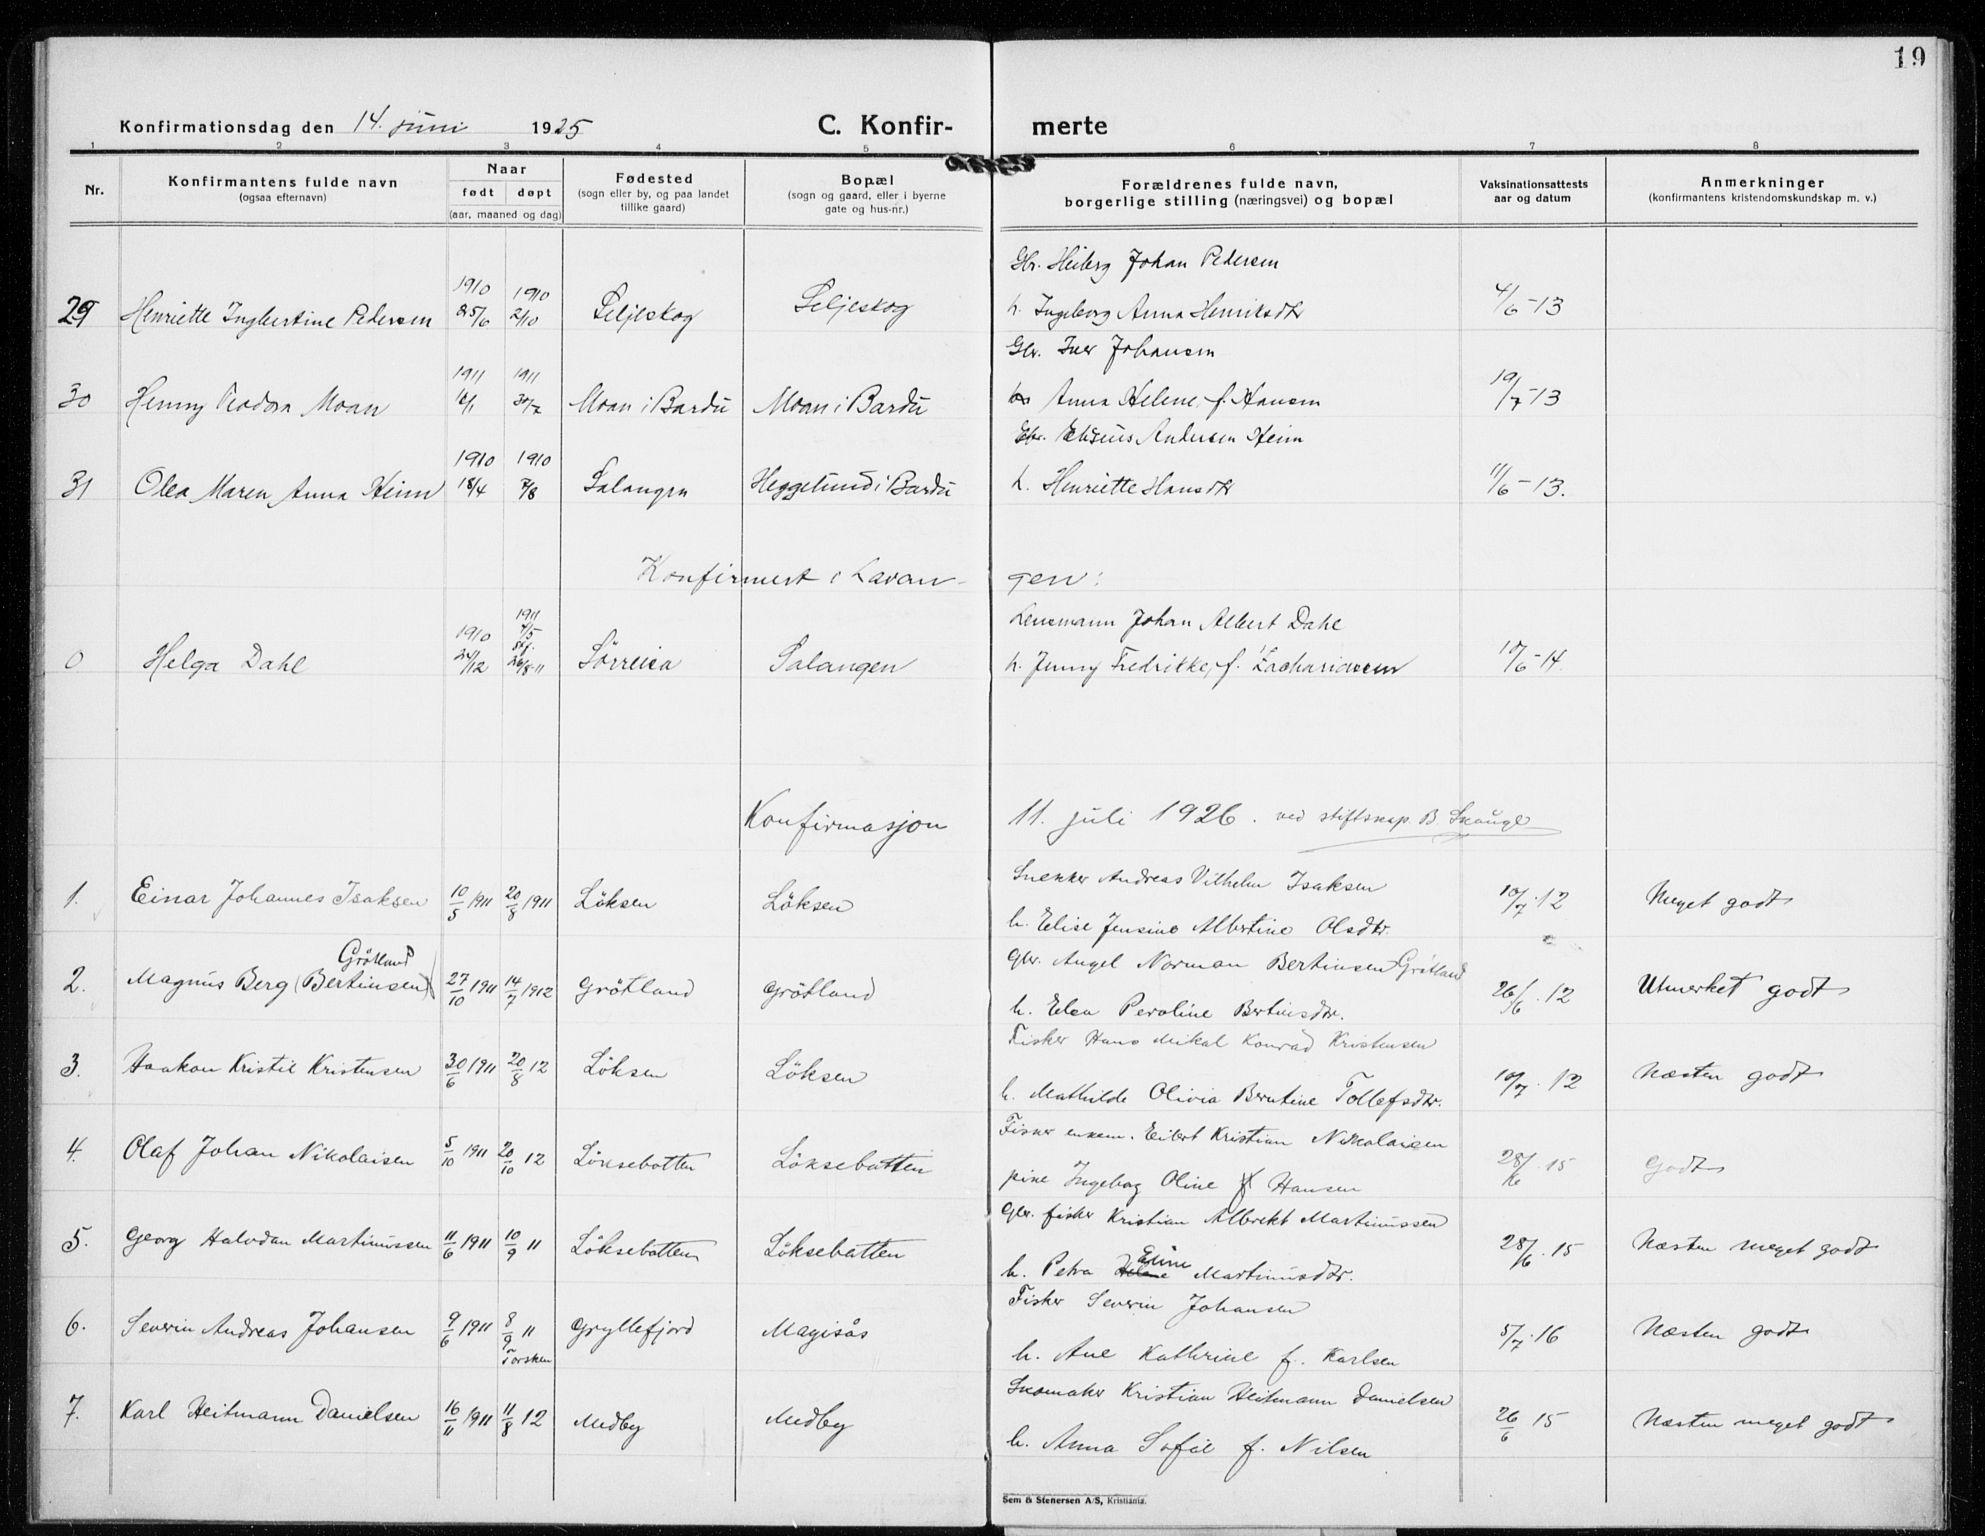 19
Konfirmationsdag den 14. juni 1925 C. Konfir- merte
1 2 3 4 5 6 7 8
Nr. Konfirmantens fulde navn (ogsaa efternavn) Naar født døpt (aar, maaned og dag) Fødested (sogn eller by, og paa landet tillike gaard) Bopæl (sogn og gaard, eller i byerne gate og hus-nr.) Forældrenes fulde navn, borgerlige stilling (næringsvei) og bopæl Vaksinationsattests aar og datum Anmerkninger (konfirmantens kristendomskundskap m. v.)
Gbr. Heiberg Johan Pedersen
29 Henriette Ingbertine Pedersen 1910 25/6 1910 2/10 Seljeskog Seljeskog h. Ingeborg Anna Henriksdtr 4/6-13
Gbr. Iver Johansen
30 Henny Teodora Moan 1911 1911 30/7 Moan i Bardu Moan i Bardu Anna Helene, f. Hansen 19/7-13
Gbr. Andersen Heim
31 Olea Maren Anna Heim 1910 18/4 1910 7/8 Salangen Heggelund i Bardu h. Henriette Hansdtr 11/6-13.
Konfirmert i Lavan- gen:
Lensmann Johan Albert Dahl
0 Helga Dahl 1910 24/12 1911 7/5 stf. 26/8-11 Sörreisa Salangen h. Jenny Fredrikke, f. Zachariassen 10/6-14.
Konfirmasjon 11. juli 1926. ved stiftskap. B. Skauge
Snekker Andreas Vilhelm Isaksen
1. Einar Johannes Isaksen 10/5 1911 20/8 1911 Löksen Löksen h. Elise Jensine Albertine Olsdtr. 10/7.12 Meget godt
Grötland
Gbr. Angel Norman Bertinsen Grötland
2. Magnus Berg (Bertinsen) 27/10 1911 14/7 1912 Grötland Grötland h. Elea Peroline Bertinsdtr. 26/6.12 Utmerket godt
Fisker Hans Mikal Konrad Kristensen
3. Haakon Kristie Kristensen 30/6 1911 20/8 12 Löksen Löksen h. Mathilde Olivia Berntine Tollefsdtr. 10/7.12 Næsten godt
Fisker enkem. Eilert Kristian Nikolaisen
4. Olaf Johan Nikolaisen 5/10 1911 20/10 12 Löksebotten Löksebotten pine Ingeborg Oline f. Hansen 28/6.15 Godt
Gbr. fisker Kristian Albrekt Martinussen
5. Georg Halvdan Martinussen 11/6 1911 10/9 11 Löksebotten Löksebotten h. Petra Helene Eline Martinusdtr. 28/6.15 Næsten meget godt
Fisker Severin Johansen
6. Severin Andreas Johansen 9/6 1911 8/9 11 Torsken Gryllefjord Magisås h. Ane Kathrine f. Karlsen 5/7.16 Næsten godt
Skomaker Kristian Heitmann Danielsen
7. Karl Heitmann Danielsen 16/11 1911 11/8 12 Medby Medby h. Anna Sofie f. Nilsen 26/6 15 Næsten meget godt
Sem & Stenersen A/S, Kristiania.